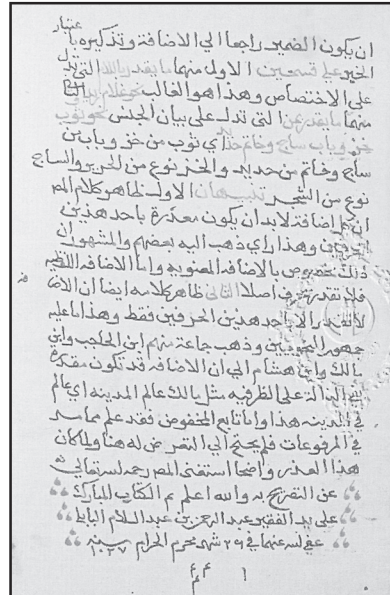 ان يكون الضمير راجعا الي الاضافة وتذكيره باعتبار
الخبر علي قسمين الاول منهما ما يقدر باللام التي تدل
علي الاختصاص وهذا هو الغالب نحو غلام زيد والثاني
منهما ما يقدر بمن التي تدل علي بيان الجنس نحو ثوب
خز وباب ساج وخاتم حديد اي ثوب من خز وباب من
ساج وخاتم من حديد والخز نوع من الحرير والساج
نوع من الشجر تنبيهان الاول ظاهر كلام المص
ان كل اضافة لابد ان يكون مقدرة باحد هذين
الحرفين وهذا راي ذهب اليه بعضهم والمشهور ان
ذلك مخصوص بالاضافه المعنويه واما الاضافه اللفظيه
فلا تقدر بحرف اصلا الثاني ظاهر كلامه ايضا ان الاضا فه
لا تقدر الا باحد هذين الحرفين فقط وهذا ما عليه
جمهور النحويين وذهب جماعة منهم ابن الحاجب وابن
مالك وابن هشام الي ان الاضافه قد تكون مقدرة
بفي الدالة على الظرفيه مثل مالك عالم المدينه اي عالم
في المدينه هذا واما تابع المخفوض فقد علم مما سر
في المرفوعات فلم يحتج الي التعرض له هنا ولما كان
هذا العذر واضحا استغنى المص رحمه الله تعالي
عن التصريح به والله اعلم تم الكتاب المبارك
علي يد الفقير عبد الرحمن بن عبد السلام
عفي الله عنهما في ٢٦ شهر محرم الحرام سنه ١٠٢٧